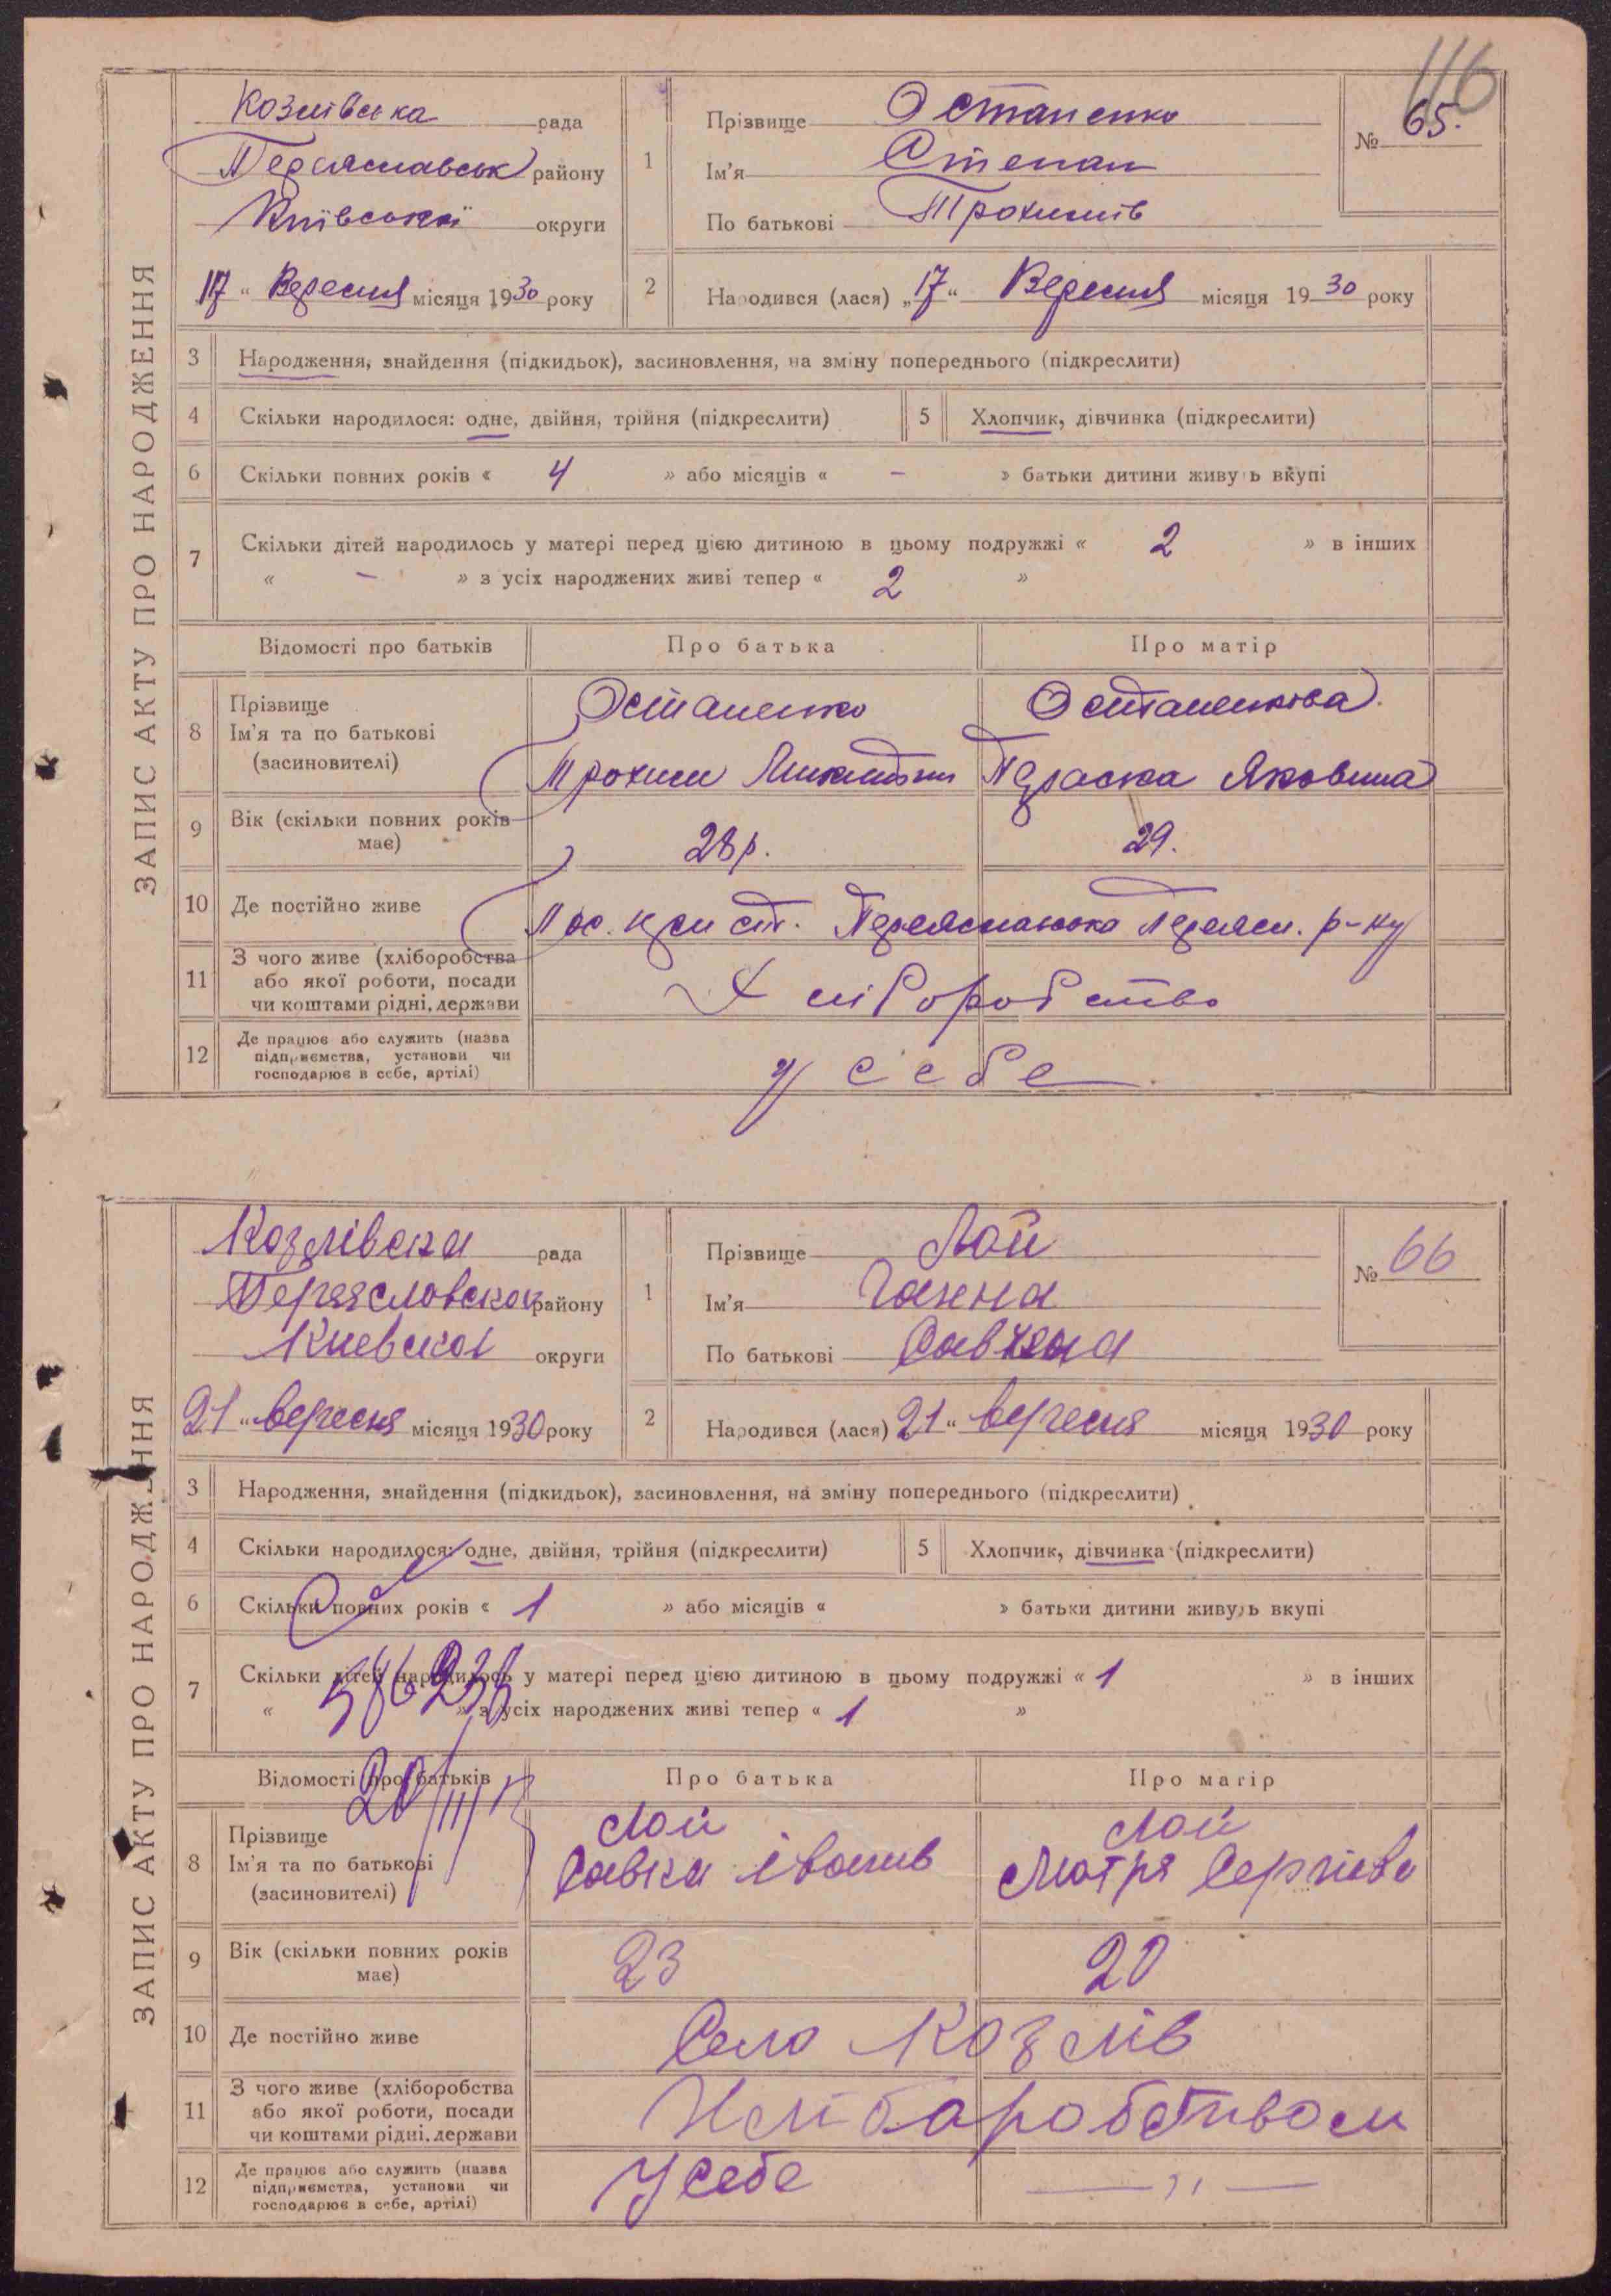 116
ЗАПИС АКТУ ПРО НАРОДЖЕННЯ
Козлівська рада
Переяславськ району
Київської округи
17 " Вересня місяця 1930 року
1
Прізвище Остапенко
Ім'я Степан
По батькові Трохимів
№ 65.
2
Народився (лася) „17" Вересня місяця 1930 року
3 Народження, знайдення (підкидьок), засиновлення, на зміну попереднього (підкреслити)
4 Скільки народилося: одне, двійня, трійня (підкреслити)
5 Хлопчик, дівчинка (підкреслити)
6 Скільки повних років « 4 » або місяців « - » батьки дитини живуть вкупі
7 Скільки дітей народилось у матері перед цією дитиною в цьому подружжі « 2 » в інших
« - » з усіх народжених живі тепер « 2 »
Відомості про батьків Про батька Про матір
8 Прізвище
Ім'я та по батькові
(засиновителі)
Остапенко
Трохим
Остапенкова
Параска Яковина
9 Вік (скільки повних років
має)
28 р. 29.
10 Де постійно живе
Пос. ст. Переяславська Переясл. р-ну
11 З чого живе (хліборобства
або якої роботи, посади
чи коштами рідні, держави
Хліборобство
12 Де працює або служить (назва
підприємства, установи чи
господарює в себе, артілі)
у себе
ЗАПИС АКТУ ПРО НАРОДЖЕННЯ
Козлівска рада
Переясловской району
Киевскоі округи
21 " вересня місяця 1930 року
1
Прізвище Лой
Ім'я Ганна
По батькові
№ 66
2
Народився (лася) 21 " вересня місяця 1930 року
3 Народження, знайдення (підкидьок), засиновлення, на зміну попереднього (підкреслити)
4 Скільки народилося: одне, двійня, трійня (підкреслити)
5 Хлопчик, дівчинка (підкреслити)
6 Скільки повних років « 1 » або місяців « » батьки дитини живуть вкупі
7 Скільки дітей народилось у матері перед цією дитиною в цьому подружжі « 1 » в інших
« » з усіх народжених живі тепер « 1 »
Відомості про батьків Про батька Про матір
8 Прізвище
Ім'я та по батькові
(засиновителі)
Лой
Савка Іванив
Лой
Мотря Сергієва
9 Вік (скільки повних років
має)
23 20
10 Де постійно живе
Село Козлів
11 З чого живе (хліборобства
або якої роботи, посади
чи коштами рідні, держави
Хлібаробством
12 Де працює або служить (назва
підприємства, установи чи
господарює в себе, артілі)
У себе — ,, —